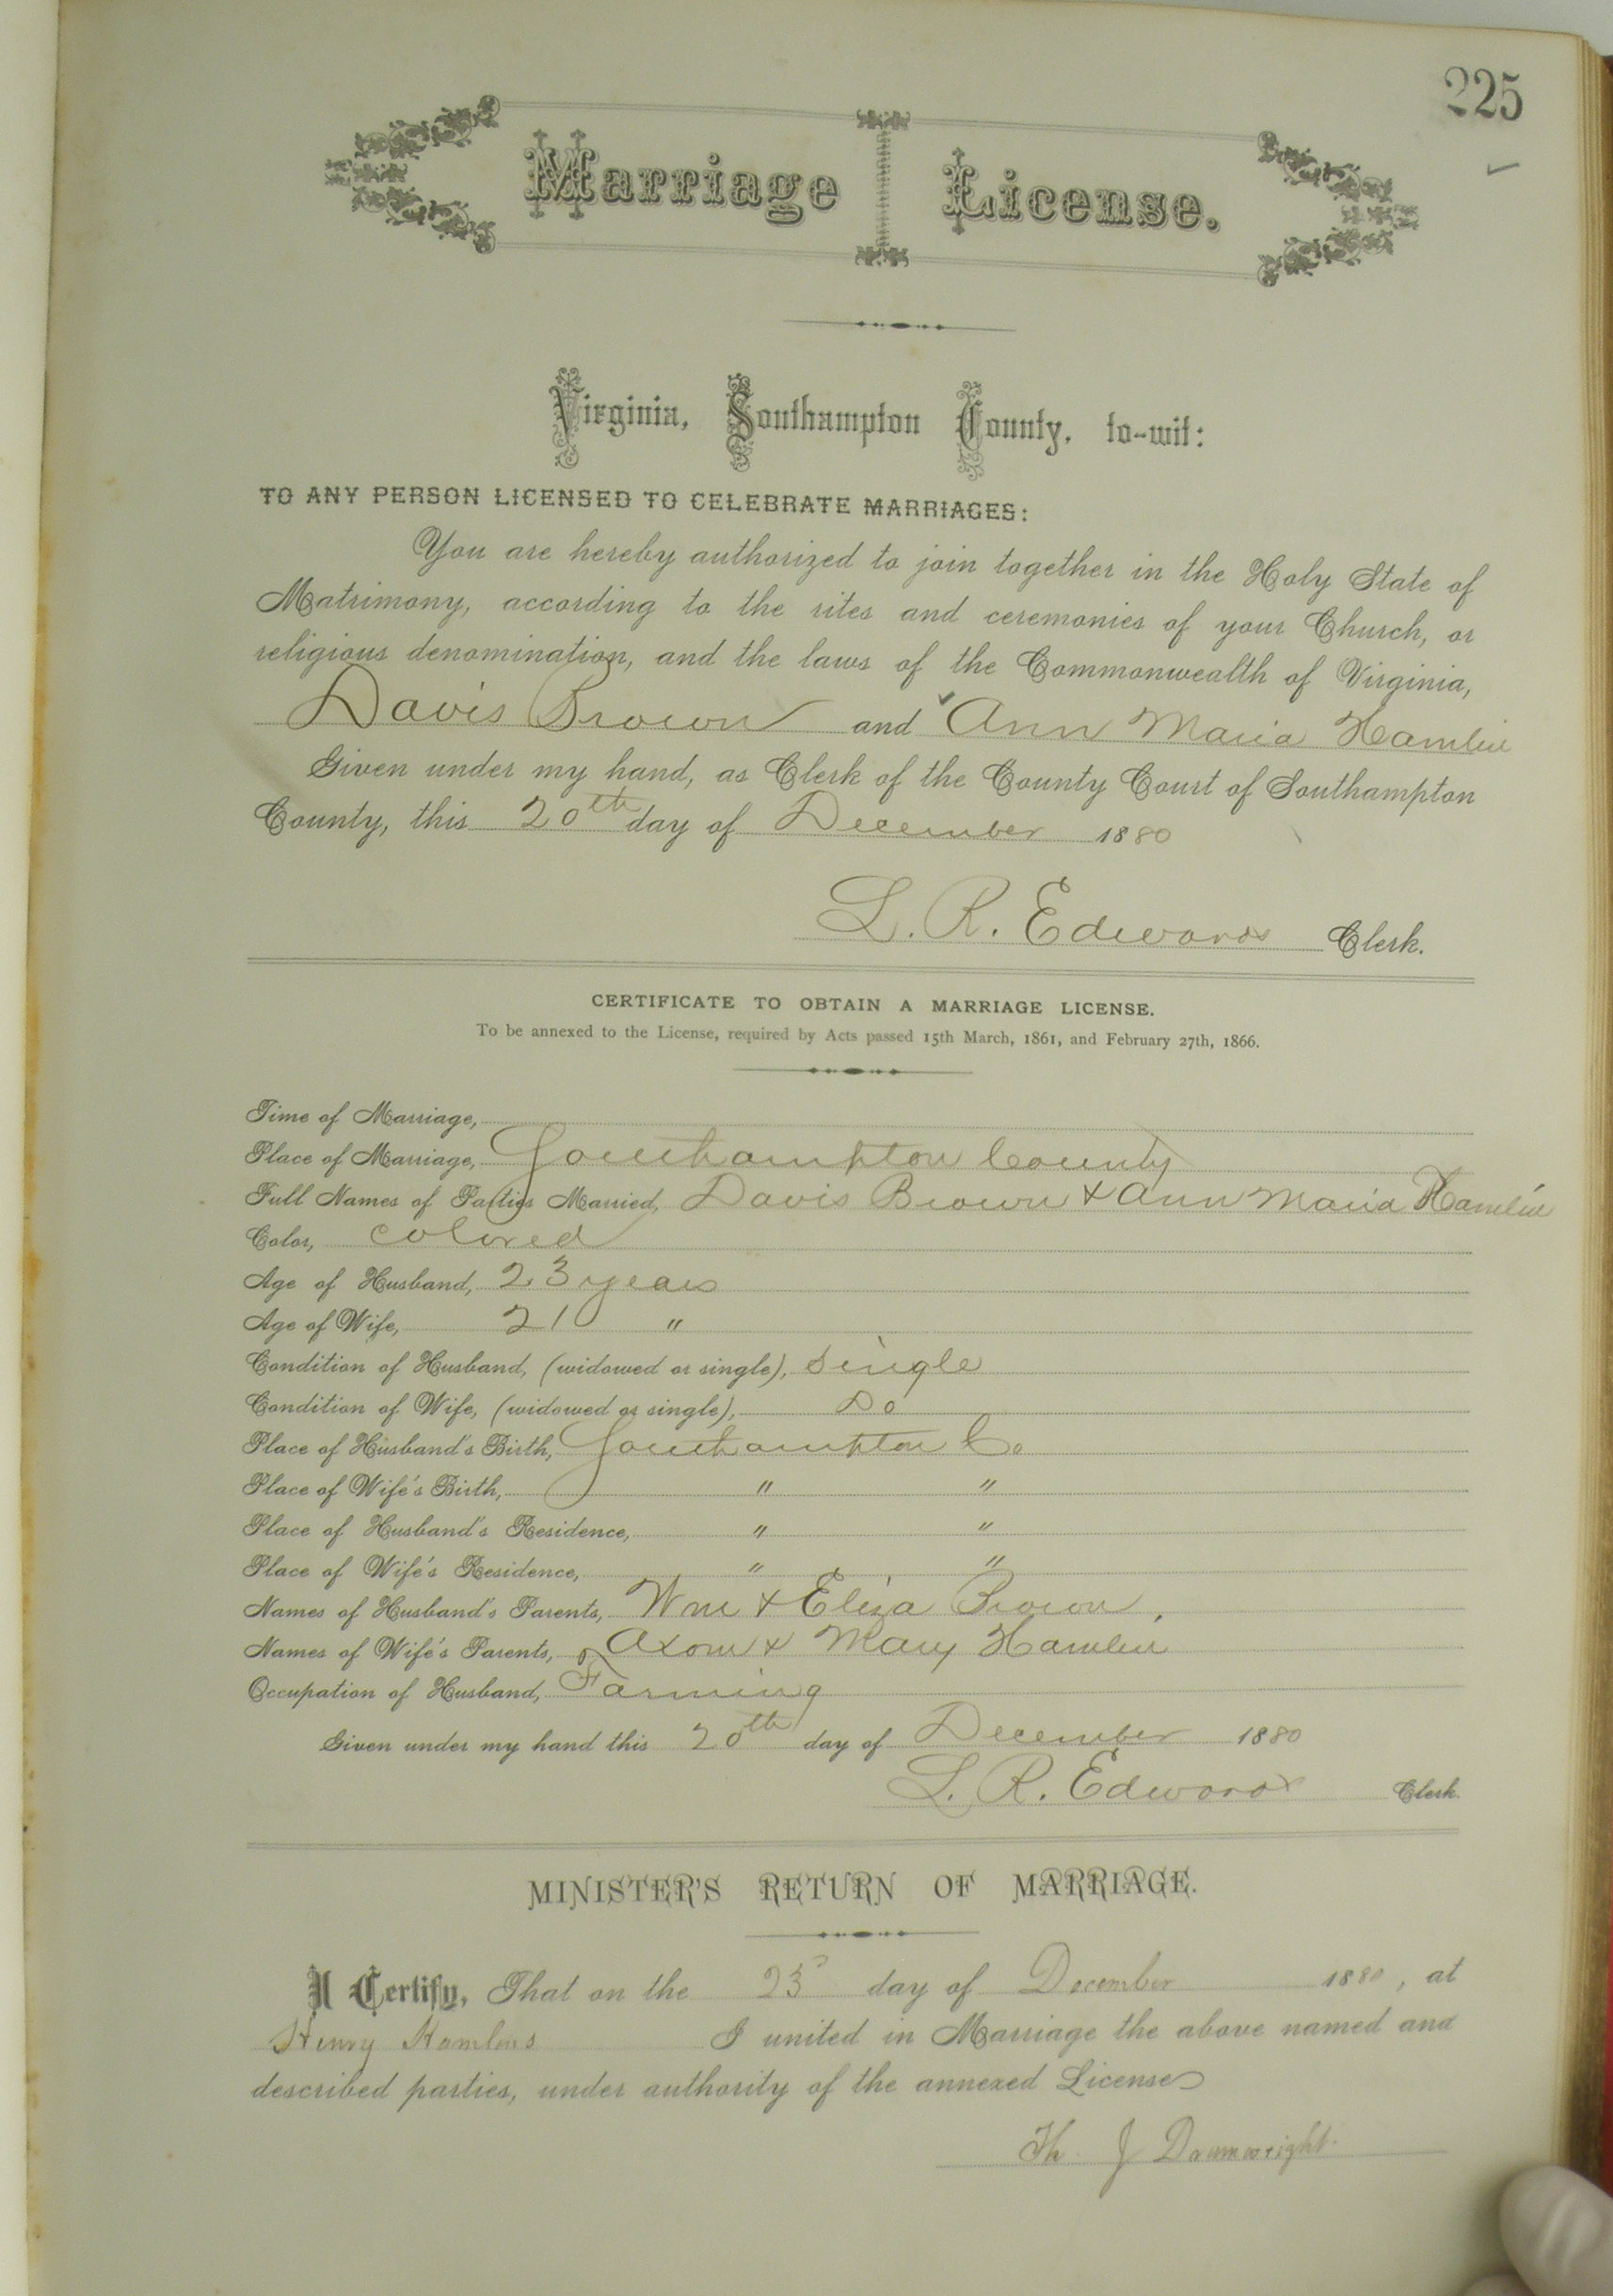 225
Marriage License.
Virginia, Southampton County, to-wit:
TO ANY PERSON LICENSED TO CELEBRATE MARRIAGES:
You are hereby authorized to join together in the Holy State of
Matrimony, according to the rites and ceremonies of your Church, or
religious denomination, and the laws of the Commonwealth of Virginia,
Davis Brown and Ann Maria Hamlin
Given under my hand, as Clerk of the County Court of Southampton
County, this 20th day of December 1880
L. R. Edwards Clerk.
CERTIFICATE TO OBTAIN A MARRIAGE LICENSE.
To be annexed to the License, required by Acts passed 15th March, 1861, and February 27th, 1866.
Time of Marriage,
Place of Marriage, Southampton County
Full Names of Parties Married, Davis Brown & Ann Maria Hamlin
Color, colored
Age of Husband, 23 years
Age of Wife, 21 "
Condition of Husband, (widowed or single), single
Condition of Wife, (widowed or single), Do
Place of Husband's Birth, Southampton Co
Place of Wife's Birth, " "
Place of Husband's Residence, " "
Place of Wife's Residence, " "
Names of Husband's Parents, Wm & Eliza Brown,
Names of Wife's Parents, Axom & Mary Hamlin
Occupation of Husband, Farming
Given under my hand this 20th day of December 1880
L. R. Edwards Clerk.
MINISTER'S RETURN OF MARRIAGE.
I Certify, That on the 23d day of December 1880, at
Henry Hamlins I united in Marriage the above named and
described parties, under authority of the annexed License
Th J Drumwright.